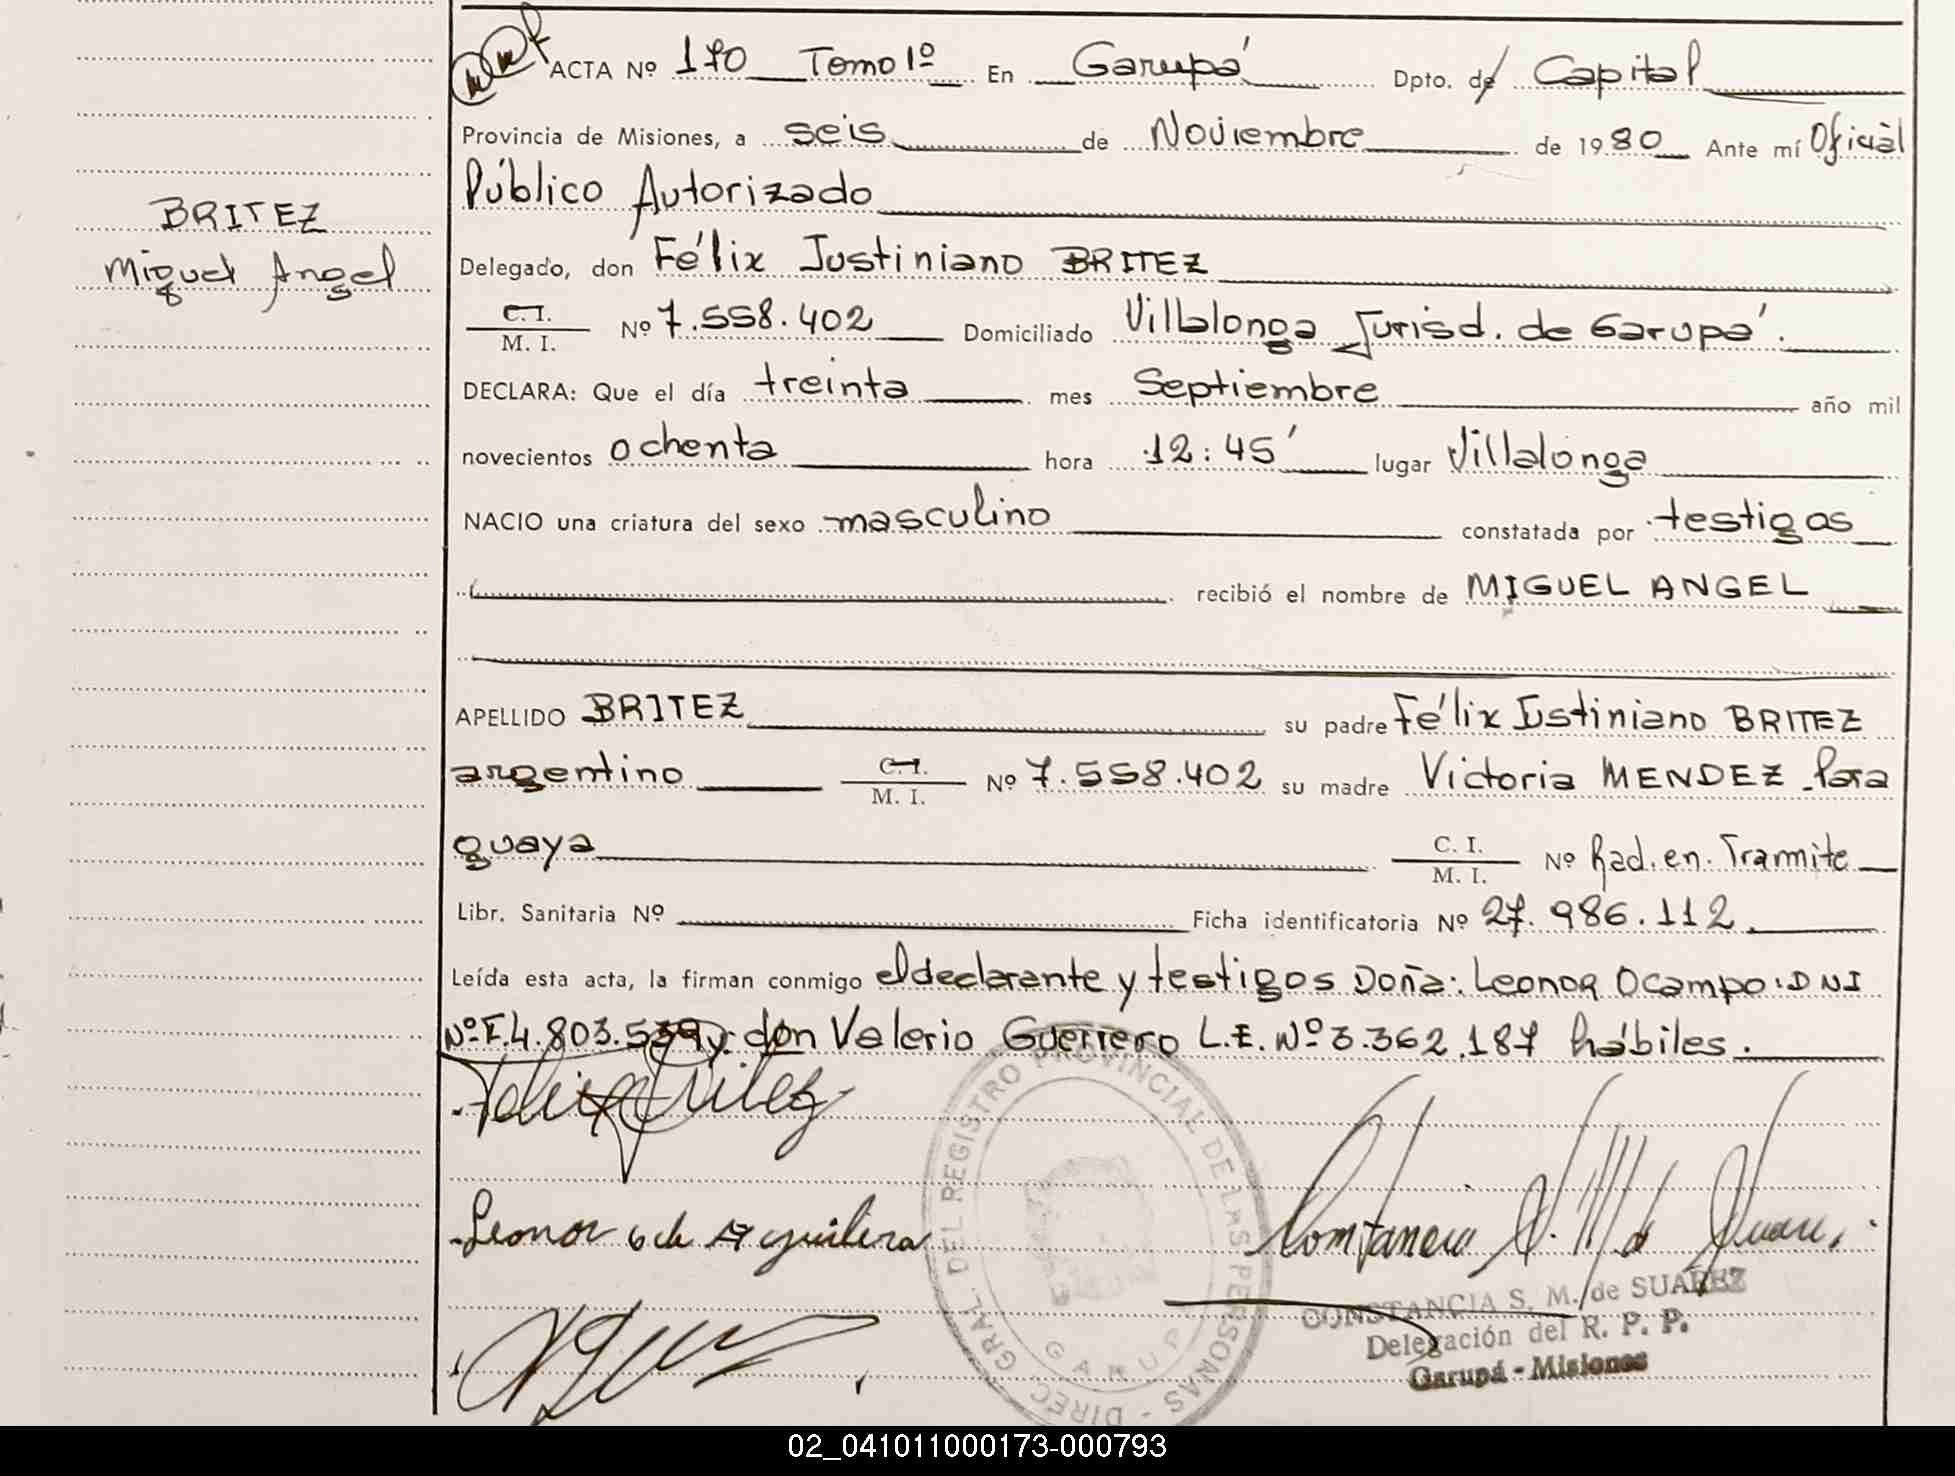 ACTA Nº 170 Tomo 1º En Garupá Dpto. de Capital
Provincia de Misiones, a seis de Noviembre de 1980 Ante mí Oficial
Público Autorizado
BRITEZ
Miguel Angel
Delegado, don Félix Justiniano BRITEZ
C. I.
M. I. Nº 7.558.402 Domiciliado Villalonga Jurisd. de Garupá.
DECLARA: Que el día treinta mes Septiembre año mil
novecientos ochenta hora 12:45' lugar Villalonga
NACIO una criatura del sexo masculino constatada por testigos
recibió el nombre de MIGUEL ANGEL
APELLIDO BRITEZ su padre Félix Justiniano BRITEZ
argentino C. I.
M. I. Nº 7.558.402 su madre Victoria MENDEZ Para
guaya C. I.
M. I. Nº Rad. en. Tramite
Libr. Sanitaria Nº Ficha identificatoria Nº 27.986.112
Leída esta acta, la firman conmigo el declarante y testigos Doña: Leonor Ocampo: DNI
Nº F.4.803.539 y don Valerio Guerrero L.E. Nº 3.362.187 hábiles.
Felix Britez
Leonor O de Aguilera
Constancia S. M. de Suarez
DIREC. GRAL. DEL REGISTRO PROVINCIAL DE LAS PERSONAS -
GARUPA
CONSTANCIA S. M. de SUAREZ
Delegación del R. P. P.
Garupá - Misiones
02_041011000173-000793